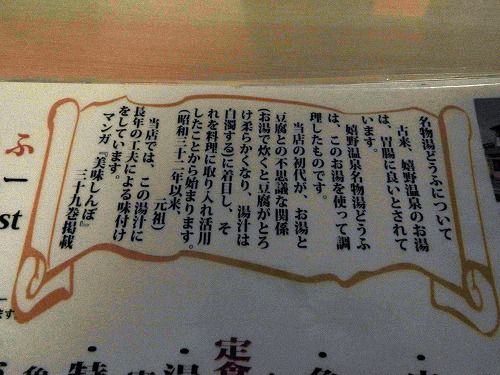 名物湯どうふについて
古来、嬉野温泉のお湯
は、胃腸に良いとされて
います。
嬉野温泉名物湯どうふ
は、このお湯を使って調
理したものです。
当店の初代が、お湯と
豆腐との不思議な関係
(お湯で炊くと豆腐がとろ
け柔らかくなり、湯汁は
白濁する)に着目し、そ
れを料理に取り入れ活用
したことから始まります。
(昭和三十二年以来、
元祖)
当店では、この湯汁に
長年の工夫による味付け
をしています。
マンガ『美味しんぼ』
三十九巻掲載
ふ
ー
st
ます。
定食
湯
特